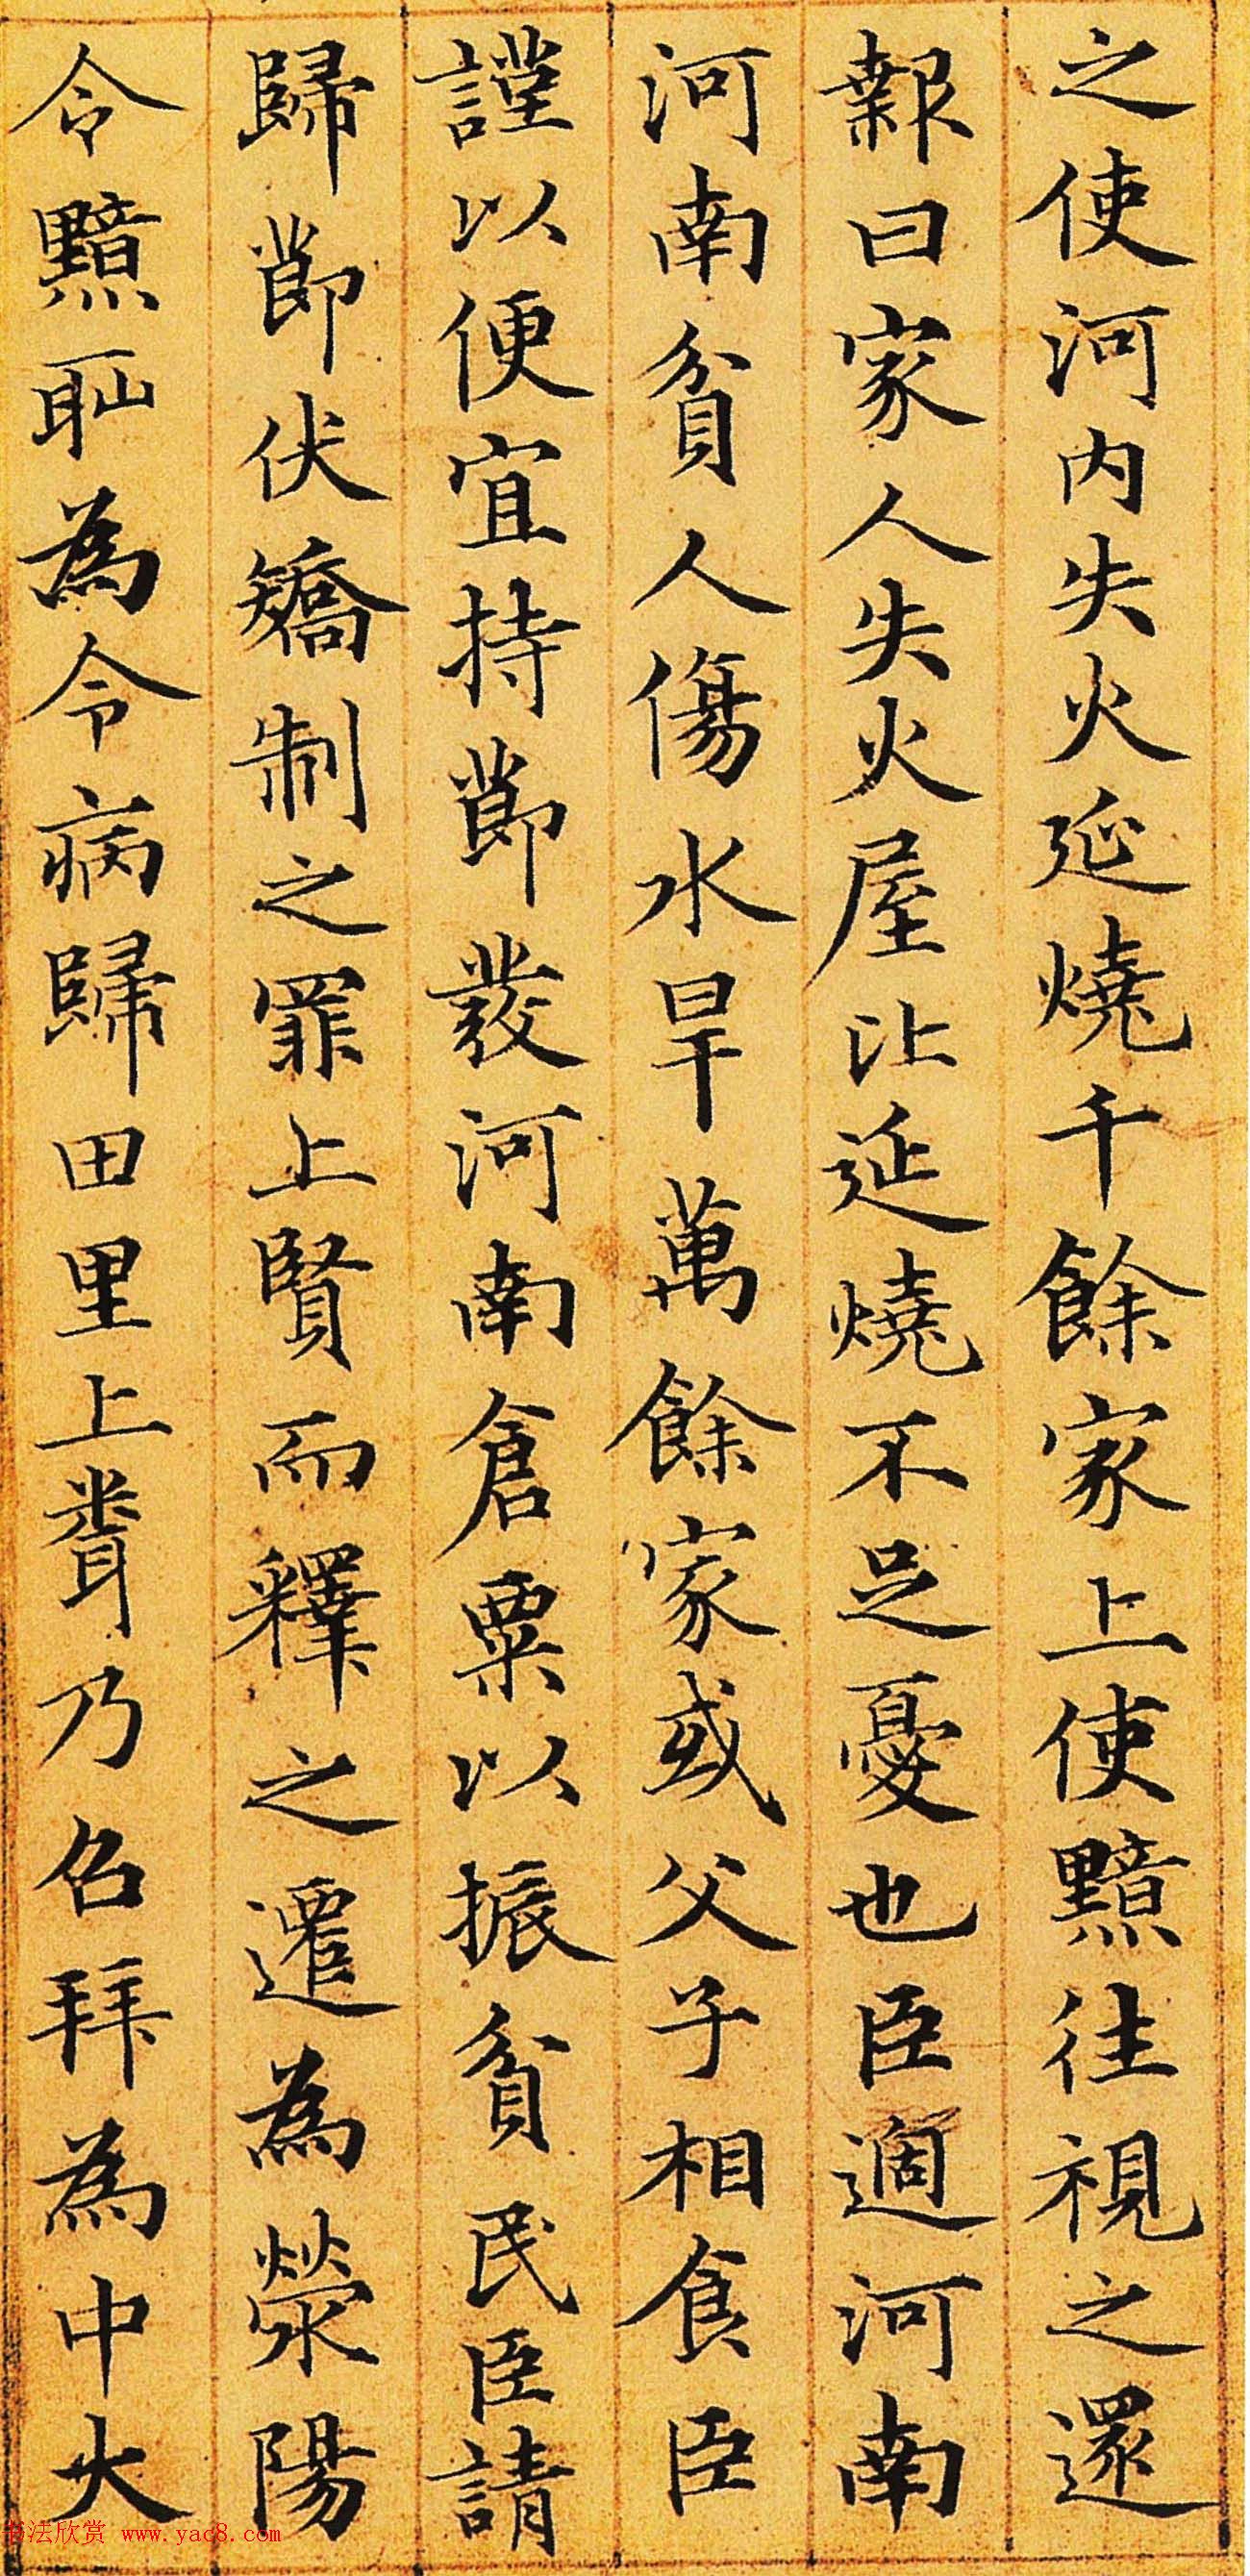 之使河内失火延燒千餘家上使黯往視之還
報曰家人失火屋比延燒不足憂也臣適河南
河南貧人傷水旱萬餘家或父子相食臣
謹以便宜持節發河南倉粟以振貧民臣請
歸節伏矯制之罪上賢而釋之遷為滎陽
令黯恥為令病歸田里上聞乃召拜為中大
书法欣赏 www.yac8.com